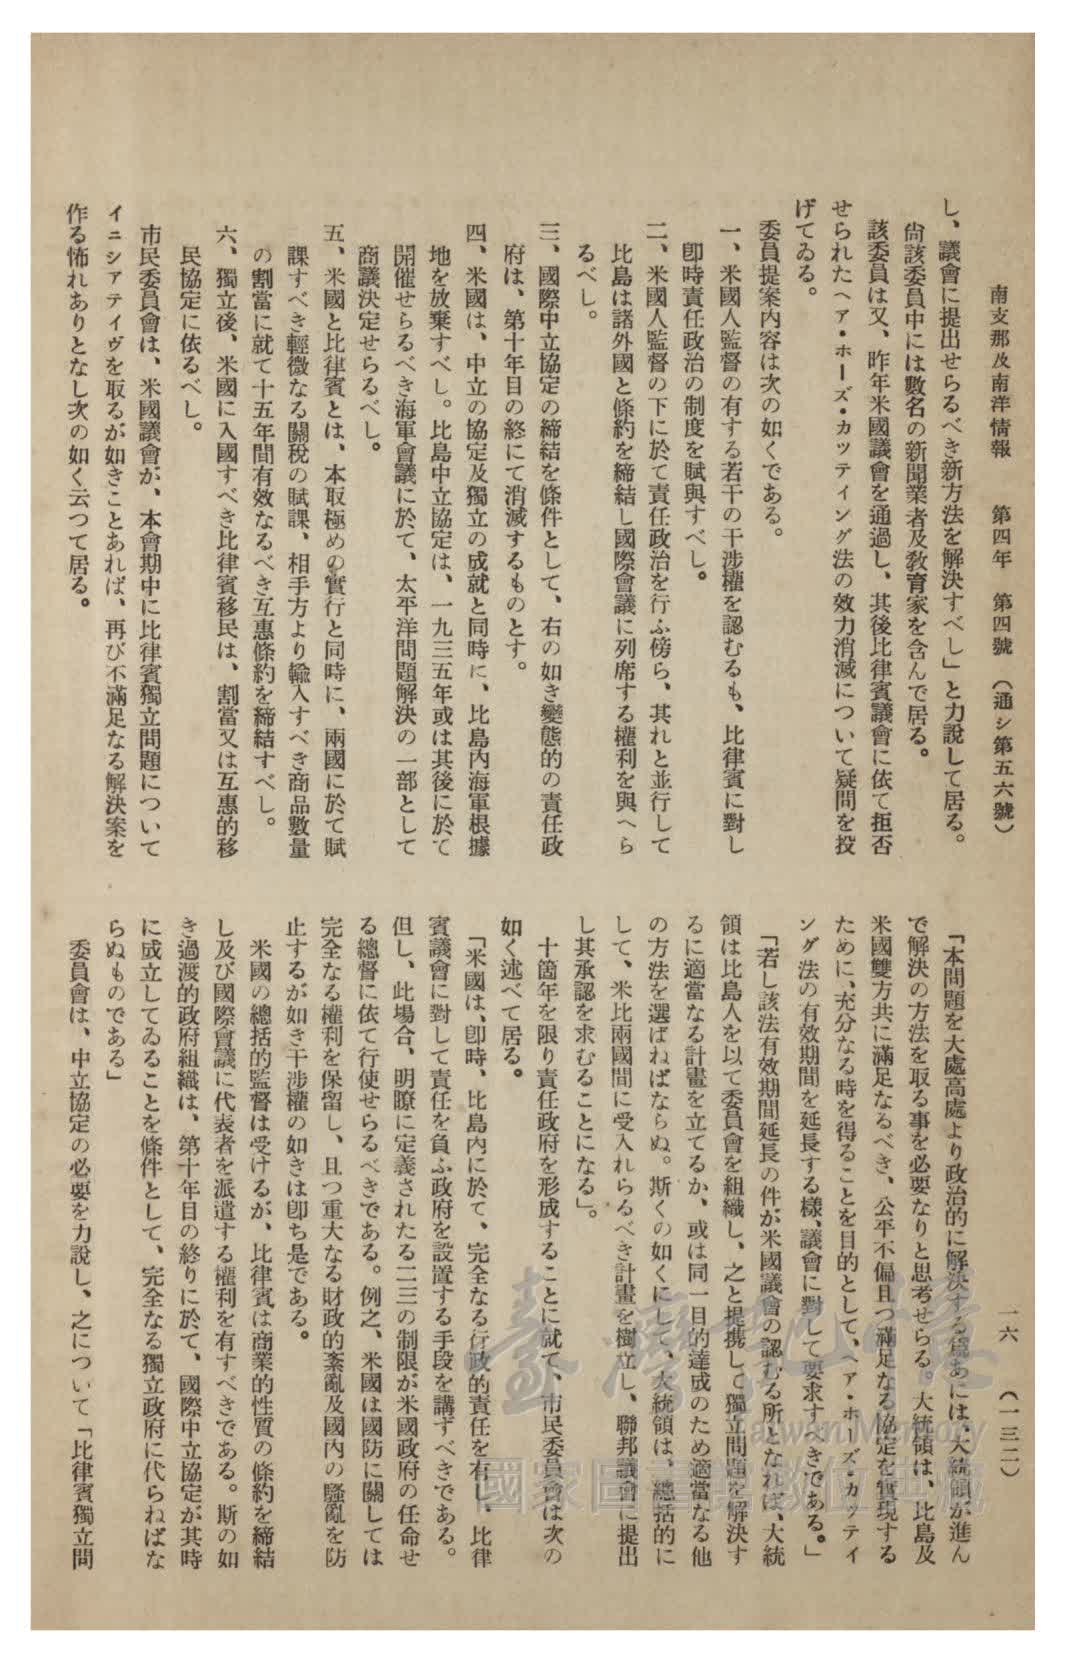 南支那及南洋情報　第四年　第四號　（通シ第五六號）
一六　（一三二）
し、議會に提出せらるべき新方法を解決すべし」と力說して居る。
尙該委員中には數名の新聞業者及敎育家を含んで居る。
該委員は又、昨年米國議會を通過し、其後比律賓議會に依て拒否
せられたヘア・ホーズ・カッティング法の效力消滅について疑問を投
げてゐる。
委員提案内容は次の如くである。
一、米國人監督の有する若干の干涉權を認むるも、比律賓に對し
卽時責任政治の制度を賦與すべし。
二、米國人監督の下に於て責任政治を行ふ傍ら、其れと並行して
比島は諸外國と條約を締結し國際會議に列席する權利を與へら
るべし。
三、國際中立協定の締結を條件として、右の如き變態的の責任政
府は、第十年目の終にて消滅するものとす。
四、米國は、中立の協定及獨立の成就と同時に、比島内海軍根據
地を放棄すべし。比島中立協定は、一九三五年或は其後に於て
開催せらるべき海軍會議に於て、太平洋問題解決の一部として
商議決定せらるべし。
五、米國と比律賓とは、本取極めの實行と同時に、兩國に於て賦
課すべき輕微なる關稅の賦課、相手方より輸入すべき商品數量
の割當に就て十五年間有效なるべき互惠條約を締結すべし。
六、獨立後、米國に入國すべき比律賓移民は、割當又は互惠的移
民協定に依るべし。
市民委員會は、米國議會が、本會期中に比律賓獨立問題について
イニシアティヴを取るが如きことあれば、再び不滿足なる解決案を
作る怖れありとなし次の如く云つて居る。
「本問題を大處高處より政治的に解決する爲あには、大統領が進ん
で解決の方法を取る事を必要なりと思考せらる。大統領は、比島及
米國雙方共に滿足なるべき、公平不偏且つ滿足なる協定を實現する
ために、充分なる時を得ることを目的として、ヘア・ホーズ・カッティ
ング法の有效期間を延長する樣、議會に對して要求すべきである。」
「若し該法有效期間延長の件が米國議會の認むる所となれば、大統
領は比島人を以て委員會を組織し、之と提携して獨立問題を解決す
るに適當なる計畫を立てるか、或は同一目的達成のため適當なる他
の方法を選ばねばならぬ。斯くの如くにして、大統領は、總括的に
して、米比兩國間に受入れらるべき計畫を樹立し、聯邦議會に提出
し其承認を求むることになる」。
十箇年を限り責任政府を形成することに就て、市民委員會は次の
如く述べて居る。
「米國は、卽時、比島内に於て、完全なる行政的責任を有し、比律
賓議會に對して責任を負ふ政府を設置する手段を講ずべきである。
但し、此場合、明瞭に定義されたる二三の制限が米國政府の任命せ
る總督に依て行使せらるべきである。例之、米國は國防に關しては
完全なる權利を保留し、且つ重大なる財政的紊亂及國内の騷亂を防
止するが如き干涉權の如きは卽ち是である。
米國の總括的監督は受けるが、比律賓は商業的性質の條約を締結
し及び國際會議に代表者を派遣する權利を有すべきである。斯の如
き過渡的政府組織は、第十年目の終りに於て、國際中立協定が其時
に成立してゐることを條件として、完全なる獨立政府に代らねばな
らぬものである」
委員會は、中立協定の必要を力說し、之について「比律賓獨立問
臺灣記憶
Taiwan Memory
國家圖書館數位典藏